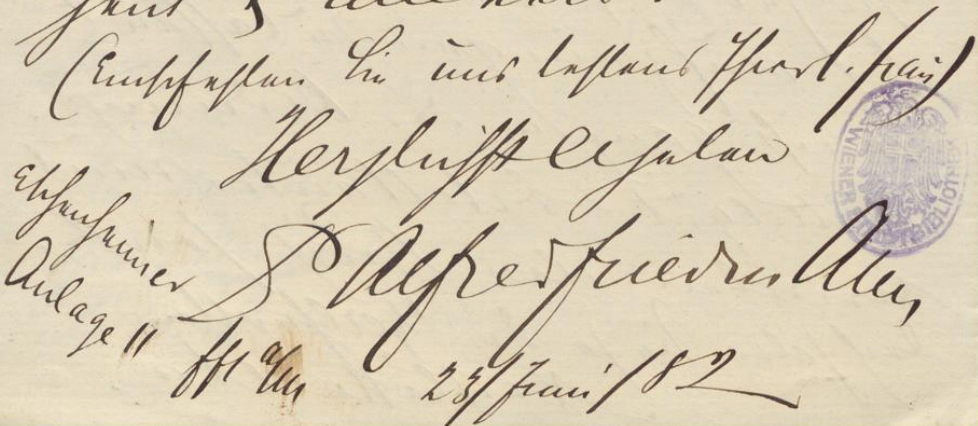 Empfehlen Sie uns bestens Ihrer l. Frau
Herzlichst
Dr Alfred Friedmann
Eschenheimer
Anlage 11
Fft a/M
23/Juni/82
WIENER STADTBIBLIOTHEK